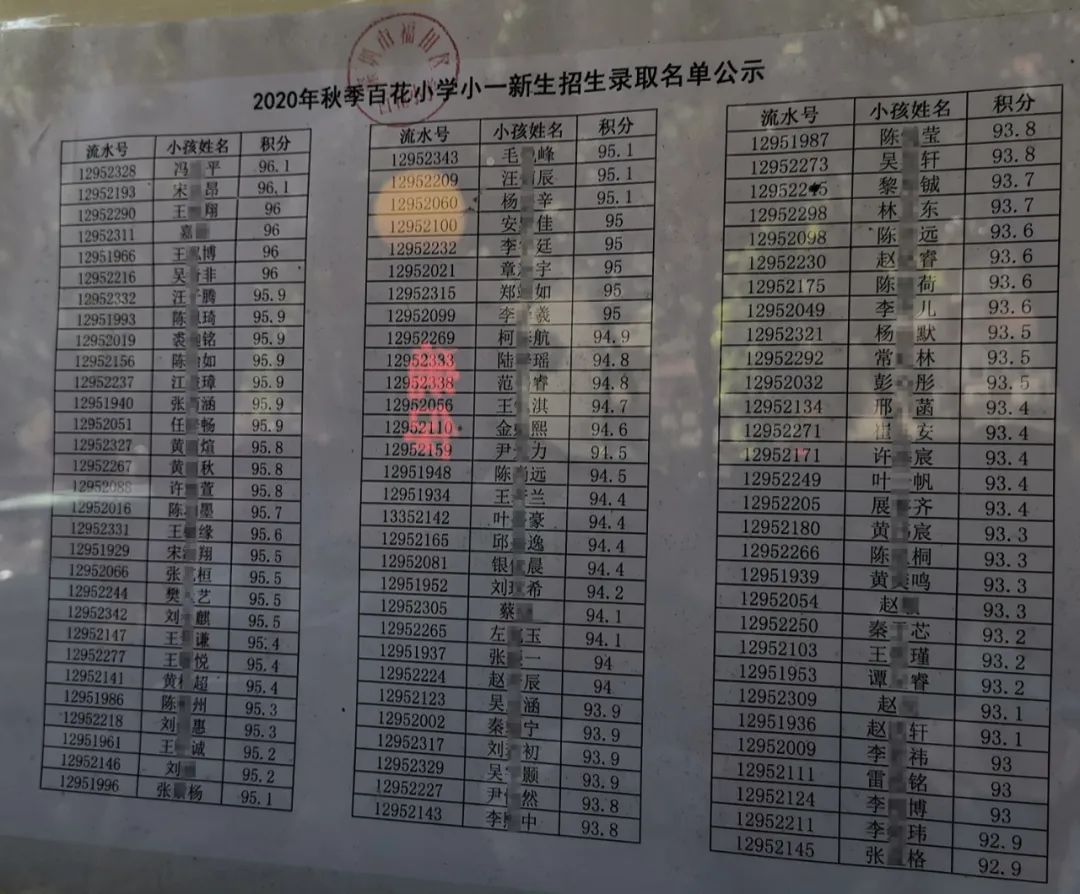 2020年秋季百花小学小一新生招生录取名单公示
流水号 小孩姓名 积分
12952328 冯 平 96.1
12952193 宋 昂 96.1
12952290 王 翔 96
12952311 嘉 96
12951966 王 博 96
12952216 吴 非 96
12952332 汪 腾 95.9
12951993 陈 琦 95.9
12952019 裘 铭 95.9
12952156 陈 如 95.9
12952237 江 璋 95.9
12951940 张 涵 95.9
12952051 任 畅 95.9
12952327 黄 煊 95.8
12952267 黄 秋 95.8
12952088 许 萱 95.8
12952016 陈 墨 95.7
12952331 王 缘 95.6
12951929 宋 翔 95.5
12952066 张 桓 95.5
12952244 樊 艺 95.5
12952342 刘 麒 95.5
12952147 王 谦 95.4
12952277 王 悦 95.4
12952141 黄 超 95.4
12951986 陈 州 95.3
12952218 刘 惠 95.3
12951961 王 诚 95.2
12952146 刘 95.2
12951996 张 杨 95.1
流水号 小孩姓名 积分
12952343 毛 峰 95.1
12952209 汪 辰 95.1
12952060 杨 辛 95.1
12952100 安 佳 95
12952232 李 廷 95
12952021 章 宇 95
12952315 郑 如 95
12952099 李 羲 95
12952269 柯 航 94.9
12952333 陆 瑶 94.8
12952338 范 睿 94.8
12952056 王 淇 94.7
12952110 金 熙 94.6
12952159 尹 力 94.5
12951948 陈 远 94.5
12951934 王 兰 94.4
13352142 叶 豪 94.4
12952165 邱 逸 94.4
12952081 银 晨 94.4
12951952 刘 希 94.2
12952305 蔡 94.1
12952265 左 玉 94.1
12951937 张 一 94
12952224 赵 辰 94
12952123 吴 涵 93.9
12952002 秦 宁 93.9
12952317 刘 初 93.9
12952329 吴 颢 93.9
12952227 尹 然 93.8
12952143 李 中 93.8
流水号 小孩姓名 积分
12951987 陈 莹 93.8
12952273 吴 轩 93.8
黎 铖 93.7
12952298 林 东 93.7
12952098 陈 远 93.6
12952230 赵 睿 93.6
12952175 陈 荷 93.6
12952049 李 儿 93.6
12952321 杨 默 93.5
12952292 常 林 93.5
12952032 彭 彤 93.5
12952134 邢 菡 93.4
12952271 崔 安 93.4
12952171 许 宸 93.4
12952249 叶 帆 93.4
12952205 展 齐 93.4
12952180 黄 宸 93.3
12952266 陈 桐 93.3
12951939 黄 鸣 93.3
12952054 赵 93.3
12952250 秦 芯 93.2
12952103 王 瑾 93.2
12951953 谭 睿 93.2
12952309 赵 93.1
12951936 赵 轩 93.1
12952009 李 祎 93
12952111 雷 铭 93
12952124 李 博 93
12952211 李 玮 92.9
12952145 张 格 92.9